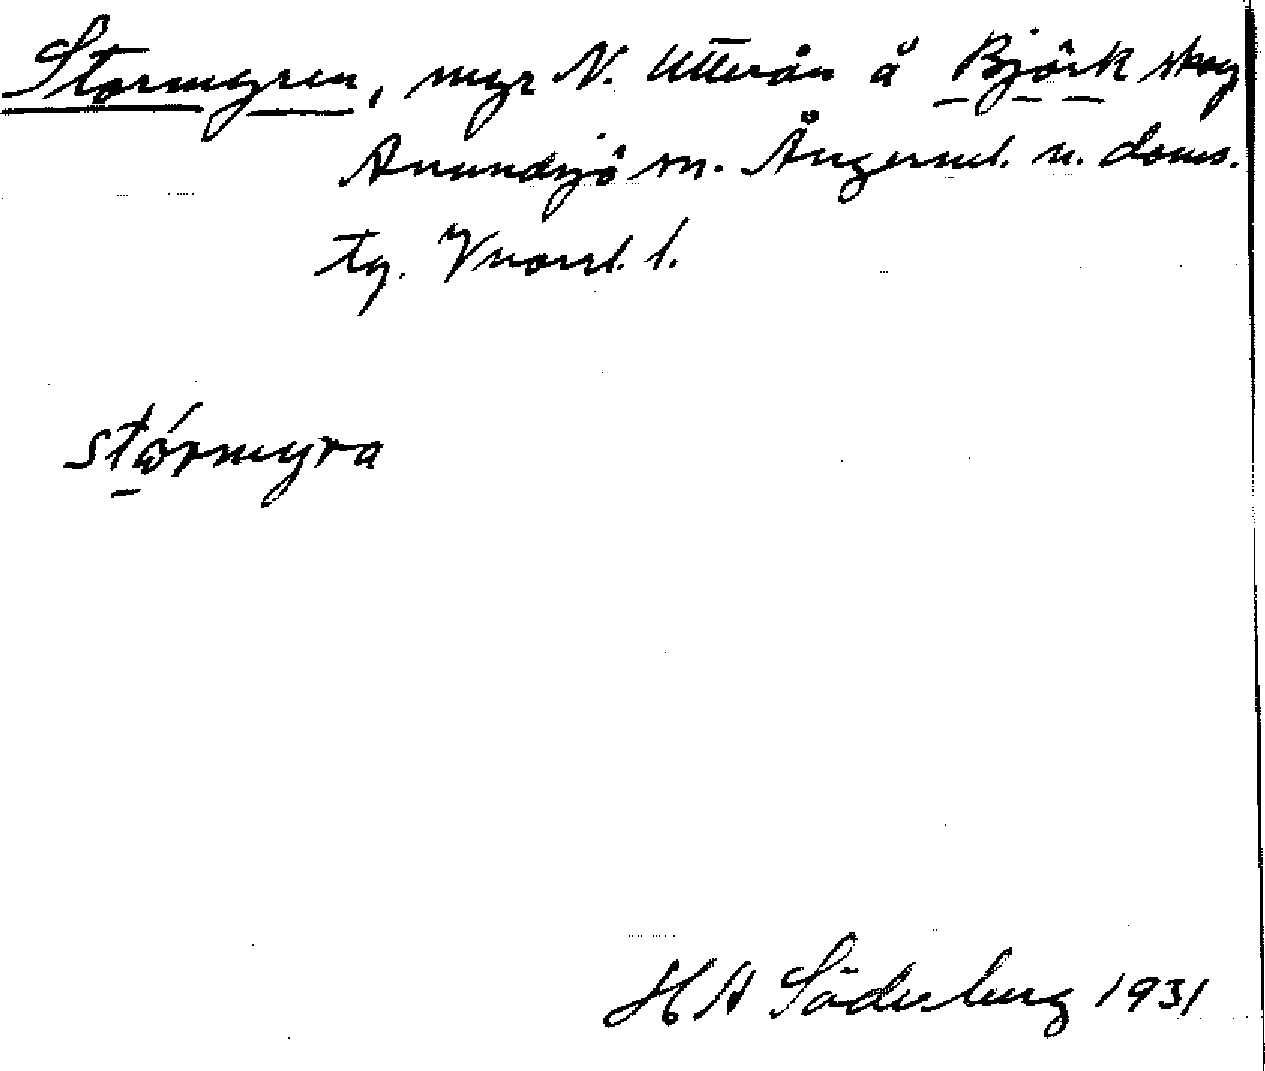 Stormyren, myr N. Utterån å Björk skog
Anundsjö sn. Ångerml. n. doms.
tg. Vnorrl. l.
stórmyra
H A Söderberg 1931